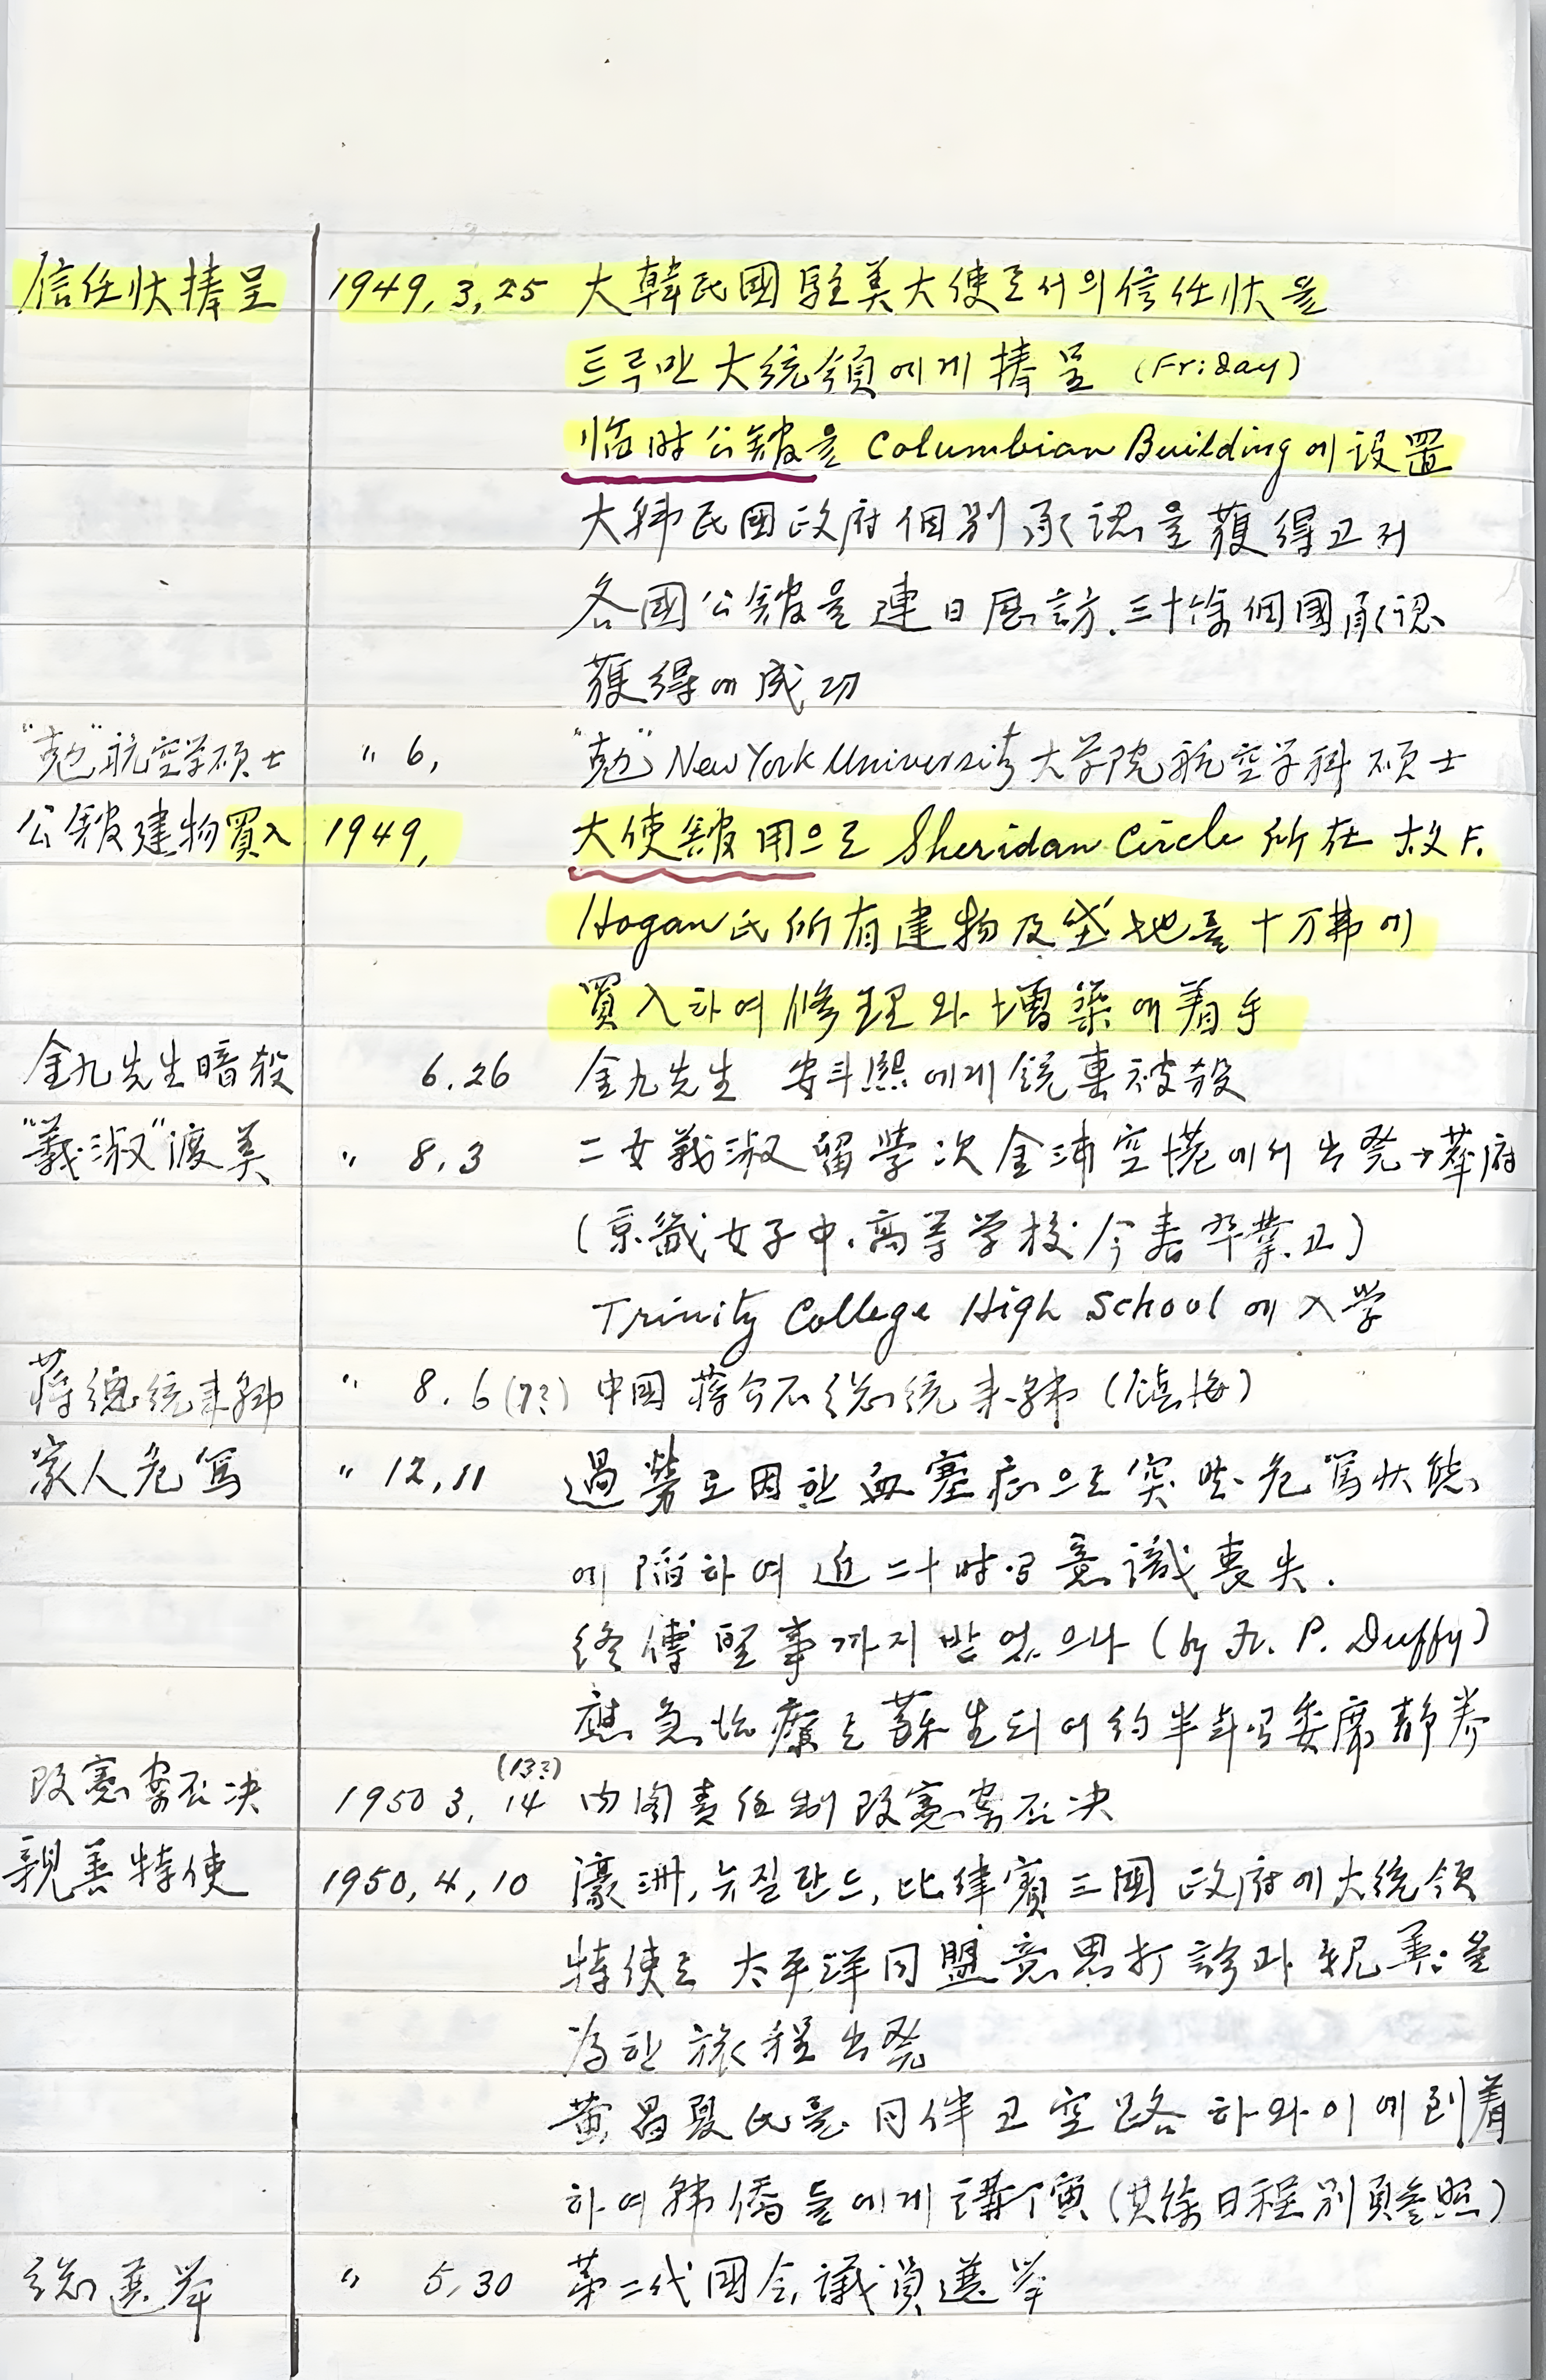 信任狀捧呈 1949, 3, 25 大韓民國駐美大使로서의信任狀을
트루만大統領에게捧呈 (Friday)
臨時公館을 Columbian Building에設置
大韓民國政府個別承認을獲得고저
各國公館을連日歷訪. 三十餘個國承認
獲得에成功
"勉"航空学碩士 " 6, "勉" New York University大学院航空学科碩士
公館建物買入 1949, 大使館用으로 Sheridan Circle 所在 故 F.
Hogan氏所有建物及垈地를十万弗에
買入하여修理와增築에着手
金九先生暗殺 6.26 金九先生 安斗熙에게銃撃被殺
"義淑"渡美 " 8.3 二女義淑留學次金浦空港에서出発→華府
(京畿女子中.高等学校今春卒業.正)
Trinity College High School에入学
蔣總統来韓 " 8.6(7?) 中国蔣介石総統来韓(鎮海)
家人危篤 " 12,11 過勞로因한血塞症으로突然危篤状態
에陥하여近二十時間意識喪失.
終傅聖事까지받었으나 (by Fr. P. Duffy)
應急治療로蘇生되여約半年間委席静養
改憲案否决 1950 3, 14 (13?) 内閣責任制改憲案否决
親善特使 1950, 4, 10 濠洲, 뉴질란드, 比律賓三國政府에大統領
特使로太平洋同盟意思打診과親善을
為한旅程出発
黄昌夏氏를同伴코空路하와이에到着
하여韓僑들에게講演(其餘日程別頁參照)
総選挙 " 5,30 第二代國会議員選挙